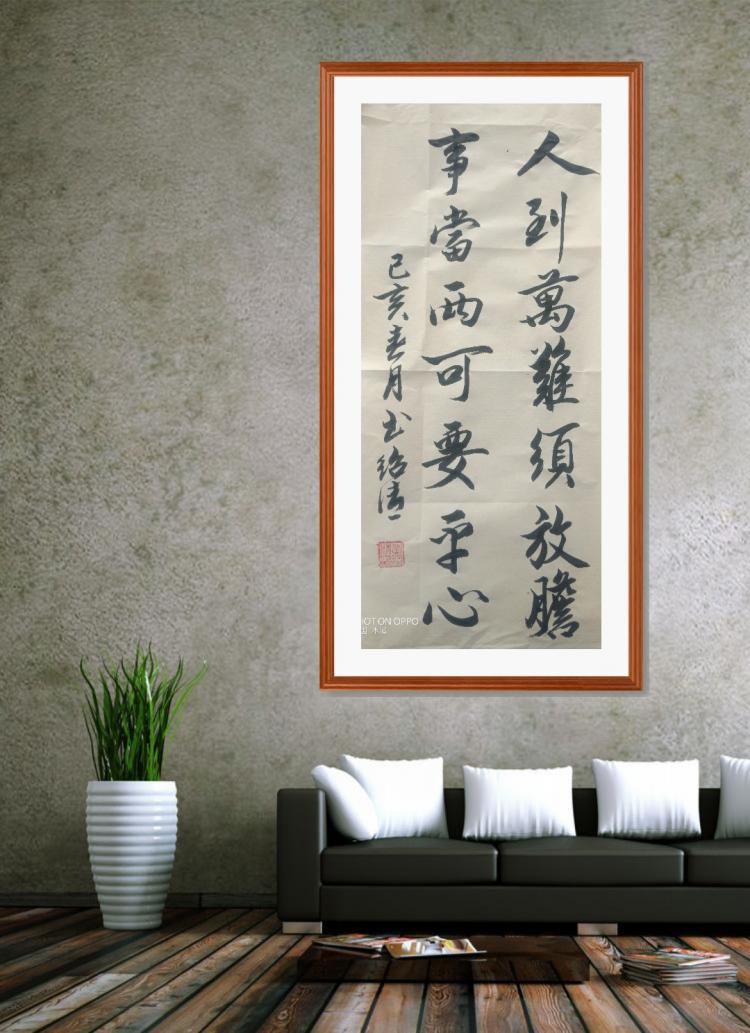 人到萬難須放膽
事當兩可要平心
己亥春月 书 绍清
HOT ON OPPO